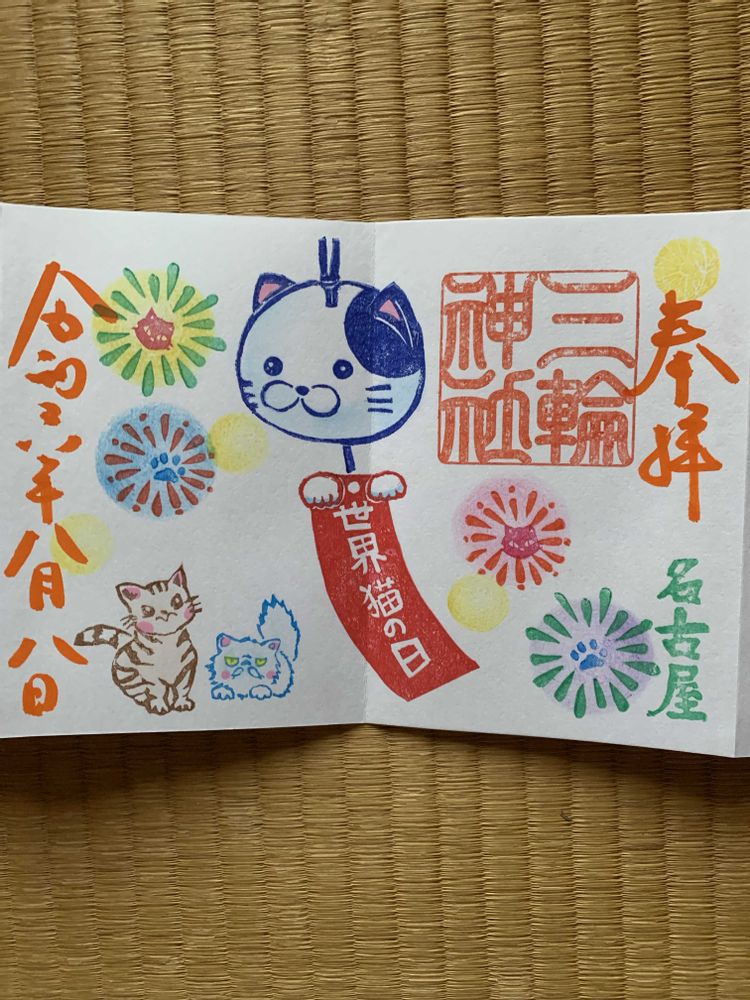 奉拝
三輪
神社
名古屋
世界猫の日
令和六年八月八日